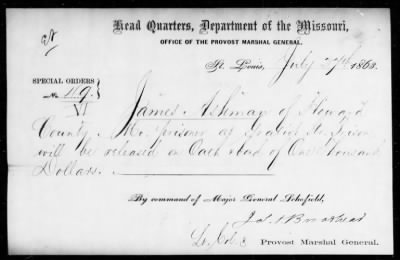 Head Quarters, Department of the Missouri,
OFFICE OF THE PROVOST MARSHAL GENERAL.
St. Louis, July 27th 1863.
SPECIAL ORDERS }
No. 119. }
VI
James Ashman of Howard
County Mo. prisoner at Gratiot St. Prison
will be released on Oath and of One Thousand
Dollars.
By command of Major General Schofield,
Lt. Col. & Provost Marshal General.